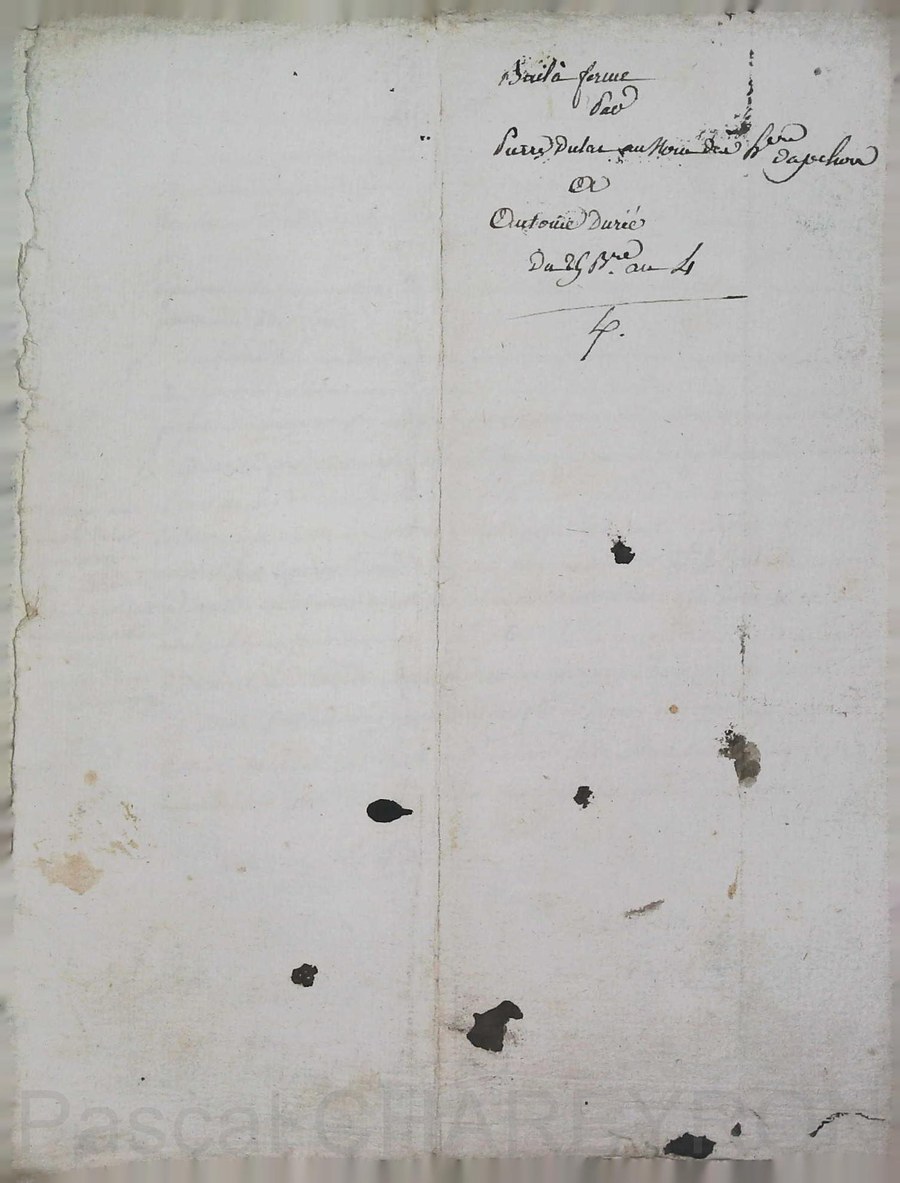 Bail à ferme
Par
Pierre Dulac au Nom des hers Dapchon
A
Antoine Durié
Du 25 Bre an 4
4.
Pascal CHARLEYRO